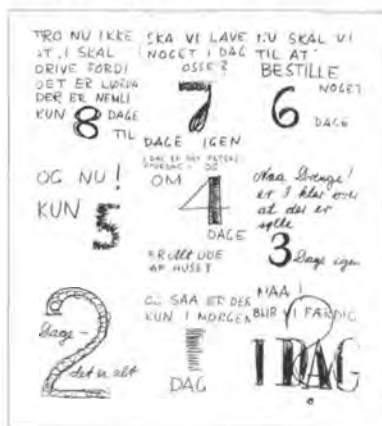 TRO NU IKKE
AT I SKAL
DRIVE FORDI
DET ER LØRDAG
DER ER NEMLI
KUN 8 DAGE
TIL
SKA VI LAVE
NOGET I DAG
OSSE?
7
DAGE IGEN
NU SKAL VI
TIL AT
BESTILLE
NOGET
6 DAGE
OG NU!
KUN 5
OM
4
DAGE
ER ude
AF HUSET
Naa Drenge!
er I klar over
at der er
3 Dage igen
2
Dage -
det er alt
SAA ER DER
KUN I MORGEN
1
DAG
NAA!
BLIR VI FÆRDIG
I DAG